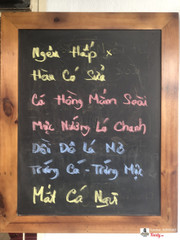 Ngêu Hấp x
Hàu Có Sữa
Cá Hồng Mắm Xoài
Mực Nướng Lá Chanh
Dồi Dồ Lá Mơ
Trứng Cá - Trứng Mực
Mắt Cá Ngừ